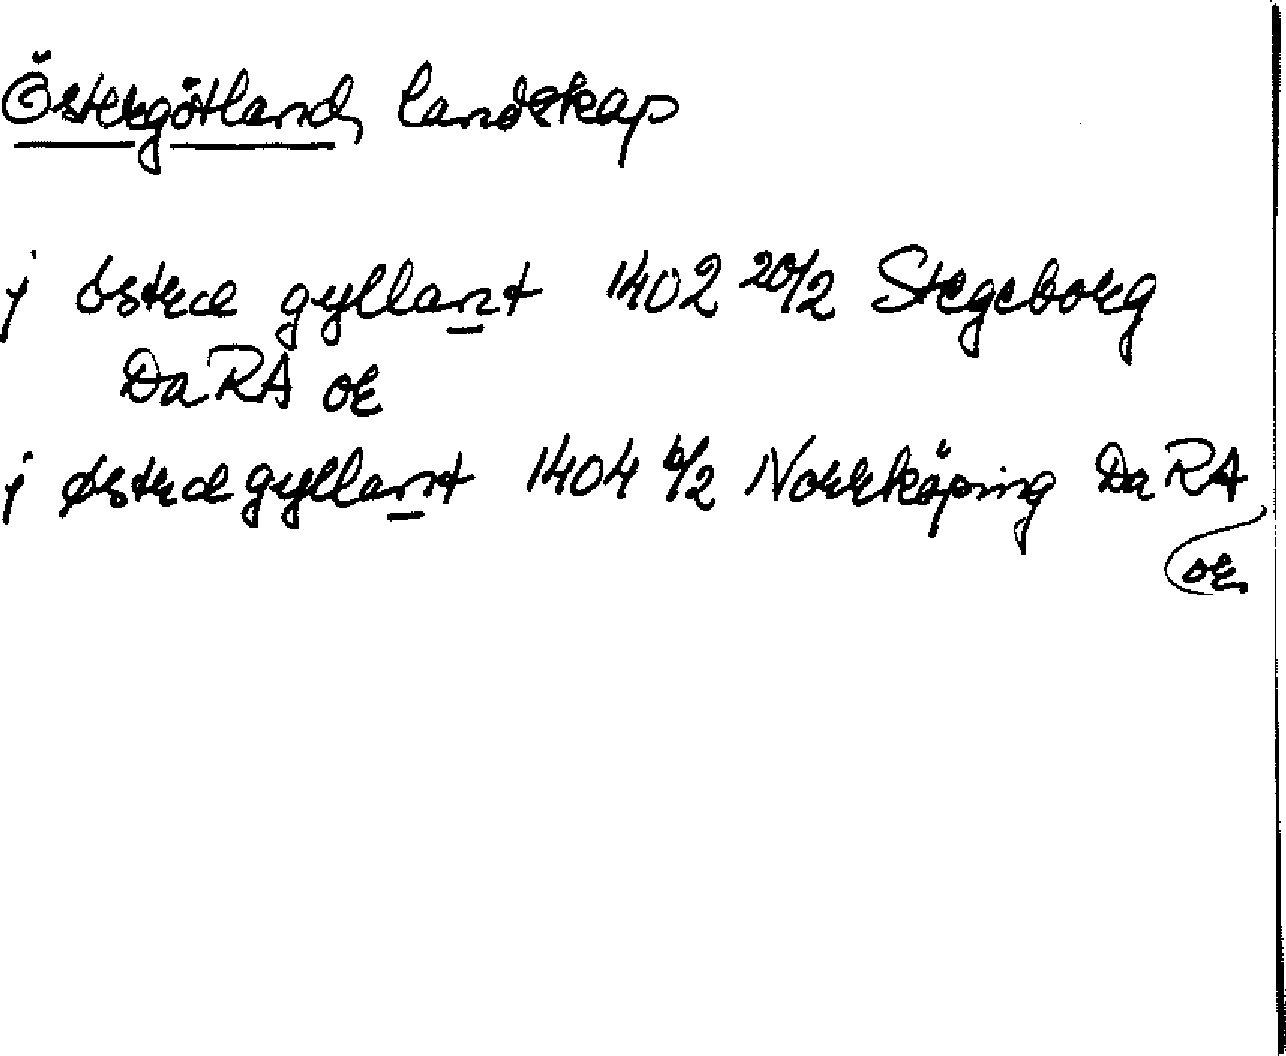 Östergötland, landskap
j østræ gyllant 1402 20/2 Stegeborg
DaRA or
j østrægyllant 1404 6/2 Norrköping DaRA
or